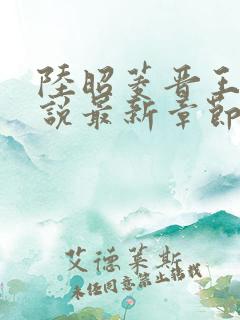 陸昭菱晉王
說最新章節
艾德莱斯
未经同意禁止转载